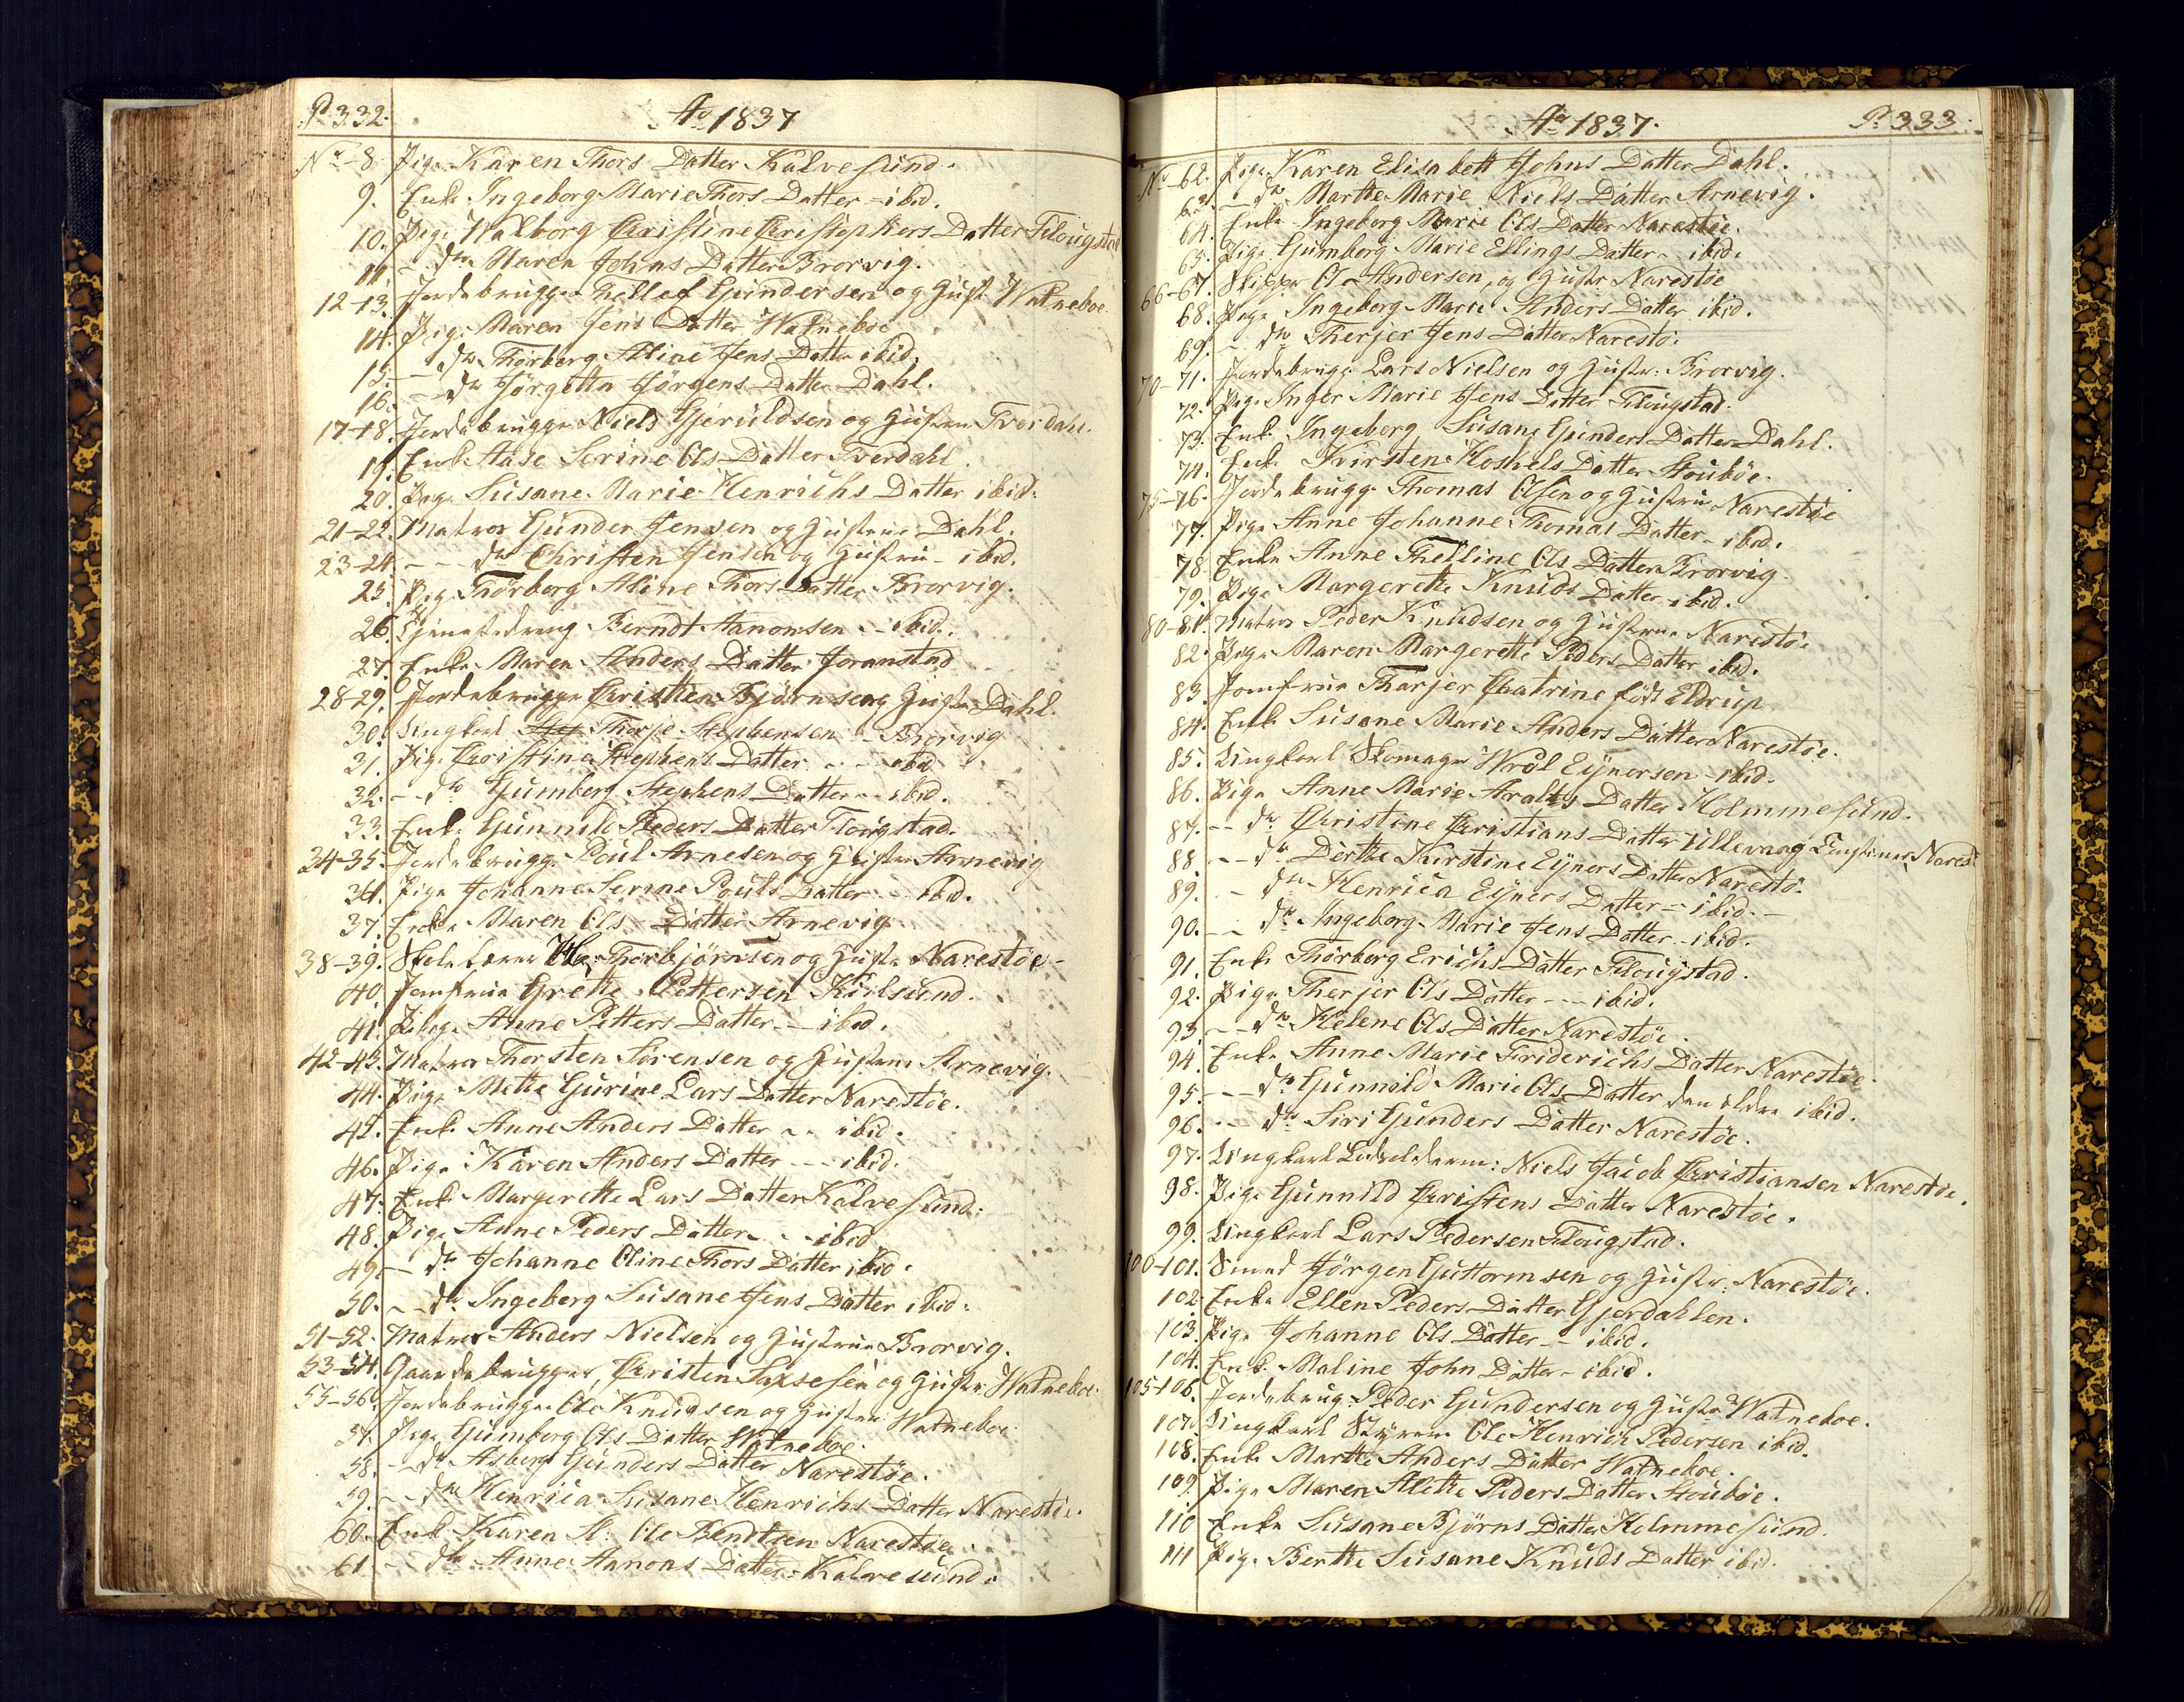 P. 332.
Ao 1837
No 8. Pige Karen Thors Datter Kalvesund.
9. Enke Ingeborg Marie Thors Datter - ibid.
10. Pige Walborg Christine Christophers Datter Flougstad
11 - do Maren Johns Datter Brorvig.
12-13. Jordebrugger Thellef Gundersen og Hustr Watneboe.
14. Pige Maren Jens Datter Watneboe
15. - do Thorborg Aline Jens Datter ibid.
16. - do Jørgetta Jørgens Datter Dahl.
17-18. Jordebrugger Niels Gjeruldsen og Hustrue Tverdahl.
19. Enke Aase Serine Ols Datter Tverdahl.
20. Pige Susane Marie Henrichs Datter ibid.
21-22. Matros Gunder Jensen og Hustrue Dahl.
23-24. - - do Christen Jensen og Hustrue - ibid.
25. Pige Thorborg Aline Thors Datter Brorvig.
26. Tjenestedreng Berndt Aanonsen - ibid.
27. Enke Maren Anders Datter Joranstad
28-29. Jordebrugger Christen Bjørnsen og Hustr Dahl.
30. Ungkarl Thorje Stephensen - Brorvig
31. Pige Christine Stephens Datter - - ibid
32. - - do Gumberg Stephens Datter - ibid.
33. Enke Gunnild Peders Datter Flougstad.
34-35. Jordebrugger Poul Arnesen og Hustrue Arnevig
36. Pige Johanne Serine Pouls Datter - ibid.
37. Enke Maren Ols - Datter Arnevig
38-39. Skolelærer Ole Thorbjörnsen og Hustr Narestøe -
40. Jomfrue Grethe Pettersen Kiilsund.
41. Pige Anne Petters Datter - - ibid.
42-43. Matros Thorsten Sørensen og Hustrue Arnevig.
44. Pige Mette Gurine Lars Datter Narestøe.
45. Enke Anne Anders Datter - - ibid.
46. Pige Karen Anders Datter - - ibid.
47. Enke Margerethe Lars Datter Kalvesund.
48. Pige Anne Peders Datter - - ibid
49. - do Johanne Oline Thors Datter ibid.
50. - - do Ingeberg Susane Jens Datter ibid.
51-52. Matros Anders Nielsen og Hustrue Brorvig.
53-54. Gaardebruger, Christen Saxesen og Hustr Watneboe.
55-56. Jordebrugger Ole Knudsen og Hustrue Watneboe
57. Pige Gumborg Ols Datter Watneboe.
58. - do Asberg Gunders Datter Narestøe.
59. - - do Henrica Susane Henrichs Datter Narestøe.
60. Enke Karen Sl: Ole Bendtsen Narestøe.
61. - do Anne Aanons Datter Kalvesund.
Ao 1837.
P. 333.
No 62. Pige Karen Elisabett Johns Datter Dahl.
63. - do Marthe Marie Niels Datter Arnevig.
64. Enke Ingeborg Marie Ols Datter Narestøe.
65. Pige Gumborg Marie Ellings Datter - ibid.
66-67. Skipper Ole Andersen, og Hustr Narestøe
68. Pige Ingeborg Marie Anders Datter ibid.
69. - do Therjer Jens Datter Narestø.
70-71. Jordebrugger Lars Nielsen og Hustr: Brorvig.
72. Pige Inger Marie Jens Datter Flougstad.
73. Enke Ingeborg Susane Gunders Datter Dahl.
74. Enke Kirsten Koshels Datter Stoubøe.
75-76. Jordebrugger Thomas Olsen og Hustrue Narestøe
77. Pige Anne Johanne Thomas Datter - ibid.
78. Enke Anne Thelline Ols Datter Brorvig.
79. Pige Margerethe Knuds Datter ibid.
80-81. Matros Peder Knudsen og Hustrue Narestøe
82. Pige Maren Margerethe Peders Datter ibid.
83. Jomfrue Tharjer Chatrine født Eldrup
84. Enke Susane Marie Anders Datter Narestøe.
85. Ungkarl Skomager Wrål Eynersen - ibid.
86. Pige Anne Marie Aralts Datter Holmmesund.
87. - - do Christine Christians Datter Ullevaag Narest
88. - - do Dorthe Kirstine Eyners Datter Narestø.
89. - do Henrica Eyners Datter - ibid. -
90. - - do Ingeborg Marie Jens Datter - ibid.
91. Enke Thørberg Erichs Datter Flougstad.
92. Pige Therjer Ols Datter - - ibid.
93. - - do Helene Ols Datter Narestøe.
94. Enke Anne Marie Friderichs Datter Narestøe.
95. - - do Gunnild Marie Ols Datter den ældre ibid.
96. - - do Siri Gunders Datter Narestøe.
97. Ungkarl Niels Jacob Christiansen Narestøe.
98. Pige Gunnild Christens Datter Narestøe.
99. Ungkarl Lars Pedersen Flougstad.
100-101. Smed Jørgen Guttormsen og Hustr: Narestøe.
102. Enke Ellen Peders Datter Gjerdahlen.
103. Pige Johanne Ols Datter - - ibid.
104. Enke Maline John Datter - ibid.
105-106. Jordebrug. Peder Gundersen og Hustr Watneboe.
107. Ungkarl Styrm: Ole Henrich Pedersen ibid.
108. Enke Marthe Anders Datter Watneboe.
109. Pige Maren Alethe Peders Datter Stoubøe.
110 Enke Susane Bjørns Datter Holmmesund.
111 Pige Berthe Susane Knuds Datter ibid.